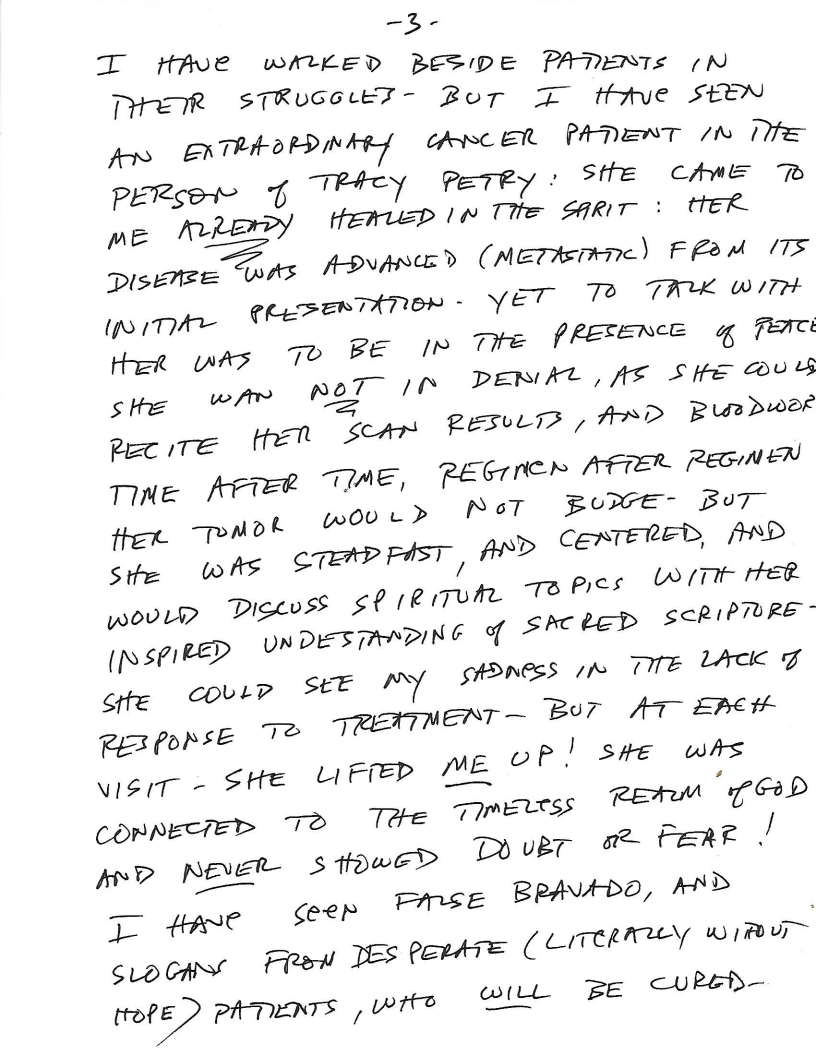 -3-
I HAVE WALKED BESIDE PATIENTS IN
THEIR STRUGGLES - BUT I HAVE SEEN
AN EXTRAORDINARY CANCER PATIENT IN THE
PERSON of TRACY PETRY: SHE CAME TO
ME ALREADY HEALED IN THE SPIRIT: HER
DISEASE WAS ADVANCED (METASTATIC) FROM ITS
INITIAL PRESENTATION - YET TO TALK WITH
HER WAS TO BE IN THE PRESENCE of PEACE
SHE WAN NOT IN DENIAL, AS SHE COULD
RECITE HER SCAN RESULTS, AND BLOODWOR
TIME AFTER TIME, REGIMEN AFTER REGIMEN
HER TUMOR WOULD NOT BUDGE - BUT
SHE WAS STEADFAST, AND CENTERED, AND
WOULD DISCUSS SPIRITUAL TOPICS WITH HER
INSPIRED UNDESTANDING of SACRED SCRIPTURE -
SHE COULD SEE MY SADNESS IN THE LACK of
RESPONSE TO TREATMENT - BUT AT EACH
VISIT - SHE LIFTED ME UP! SHE WAS
CONNECTED TO THE TIMELESS REALM of GOD
AND NEVER SHOWED DOUBT OR FEAR!
I HAVE SEEN FALSE BRAVADO, AND
SLOGANS FROM DESPERATE (LITERALLY WITHOUT
HOPE) PATIENTS, WHO WILL BE CURED -